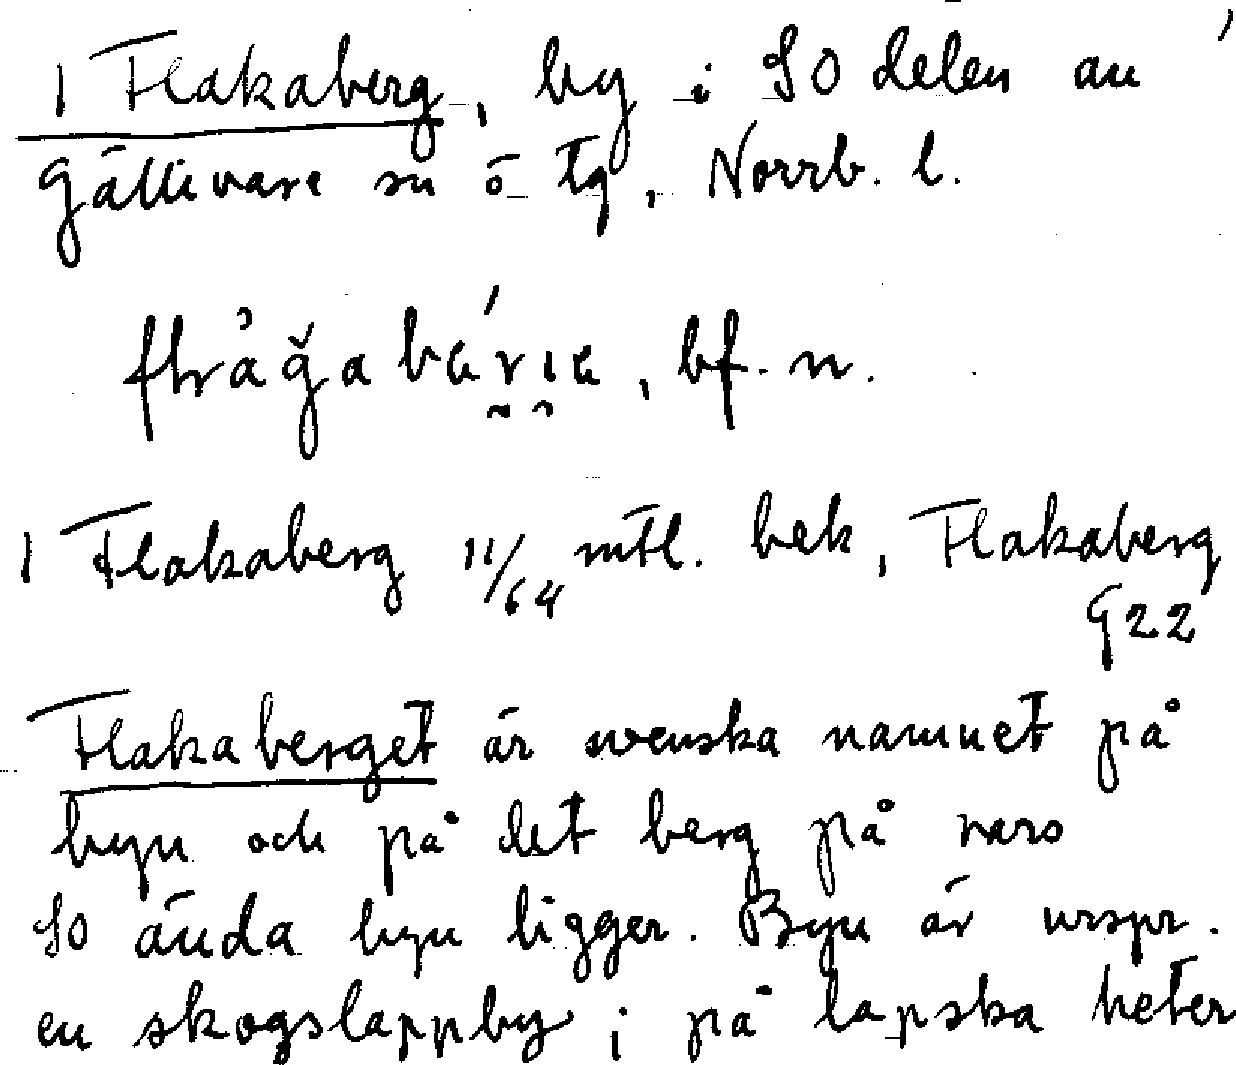 1 Flakaberg, by i SO delen av
Gällivare sn ö tg, Norrb. l.
bf. n.
1 Flakaberg 11/64 mtl. bek, Flakaberg
G22
Flakaberget är svenska namnet på
byn och på det berg på vars
SO ända byn ligger. Byn är urspr.
en skogslappby; på lapska heter